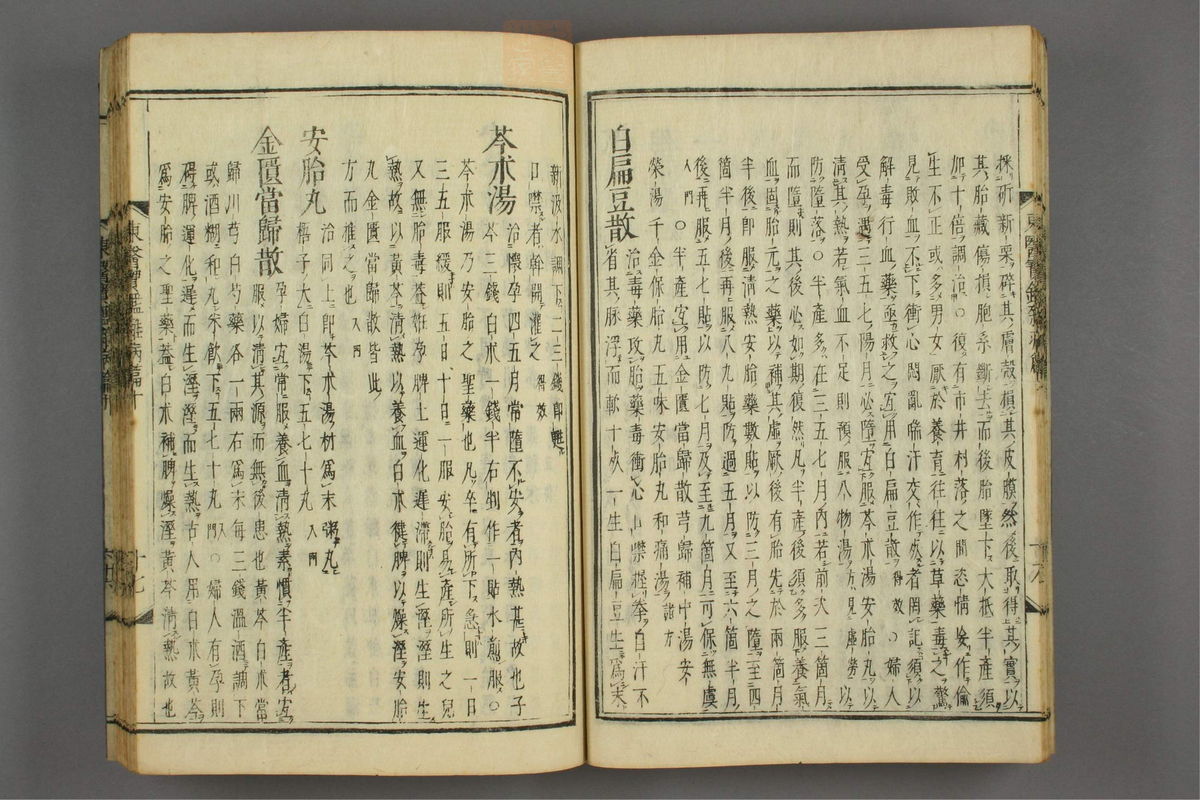 採斫新栗碎其膚殼損其皮膜然後取得其實以
其胎藏傷損胞系斷去而後胎墜下大抵半產須
加十倍調治○後有市井村落之間恣情妄作倫
生不正或多男女厭於養育往往以草藥毒之驚
見敗血不下衝心悶亂喘汗交作死者罔記須以
解毒行血藥亟救之宜用白扁豆散得效○婦人
受孕遇三五七陽月必墮宜服芩朮湯安胎丸以
清其熱若氣血不足則預服八物湯方見虛勞以
防墮落○半產多在三五七月內若前次三箇月
而墮則其後必如期復然凡半產後須多服養氣
血固胎元之藥以補其虛厥後有胎先於兩箇月
半後即服清熱安胎藥數貼以防三月之墮至四
箇半月後再服八九貼防過五月又至六箇半月
後再服五七貼以防七月及至九箇月可保無虞
入門○半產宜用金匱當歸散芎歸補中湯安
榮湯千金保胎丸五味安胎丸和痛湯諸方
白扁豆散 治毒藥攻胎藥毒衝心口噤握拳自汗不
省其脉浮而軟十死一生白扁豆生爲末
新汲水調下二三錢即甦
口噤者幹開灌之得效
芩朮湯 治懷孕四五月常墮不安者內熱甚故也子
芩三錢白朮一錢半右剉作一貼水煎服○
芩朮湯乃安胎之聖藥也凡卒有所下急則一日
三五服緩則五日十日一服安胎易產所生之兒
又無胎毒盖姙孕脾土運化遲滯則生溼溼則生
熱故以黃芩清熱以養血白朮健脾以燥溼安胎
丸金匱當歸散皆此
方而推之也 入門
安胎丸 治同上即芩朮湯材爲末粥丸
梧子大白湯下五七十丸 入門
金匱當歸散 孕婦宜常服養血清熱素慣半產者宜
服以清其源而無後患也黃芩白朮當
歸川芎白芍藥各一兩右爲末每三錢溫酒調下
或酒糊和丸茶飲下五七十丸入門○婦人有孕則
碍脾運化遲而生溼溼而生熱古人用白朮黃芩
爲安胎之聖藥盖白朮補脾燥溼黃芩清熱故也
東醫寶鑑雜病篇十
十七